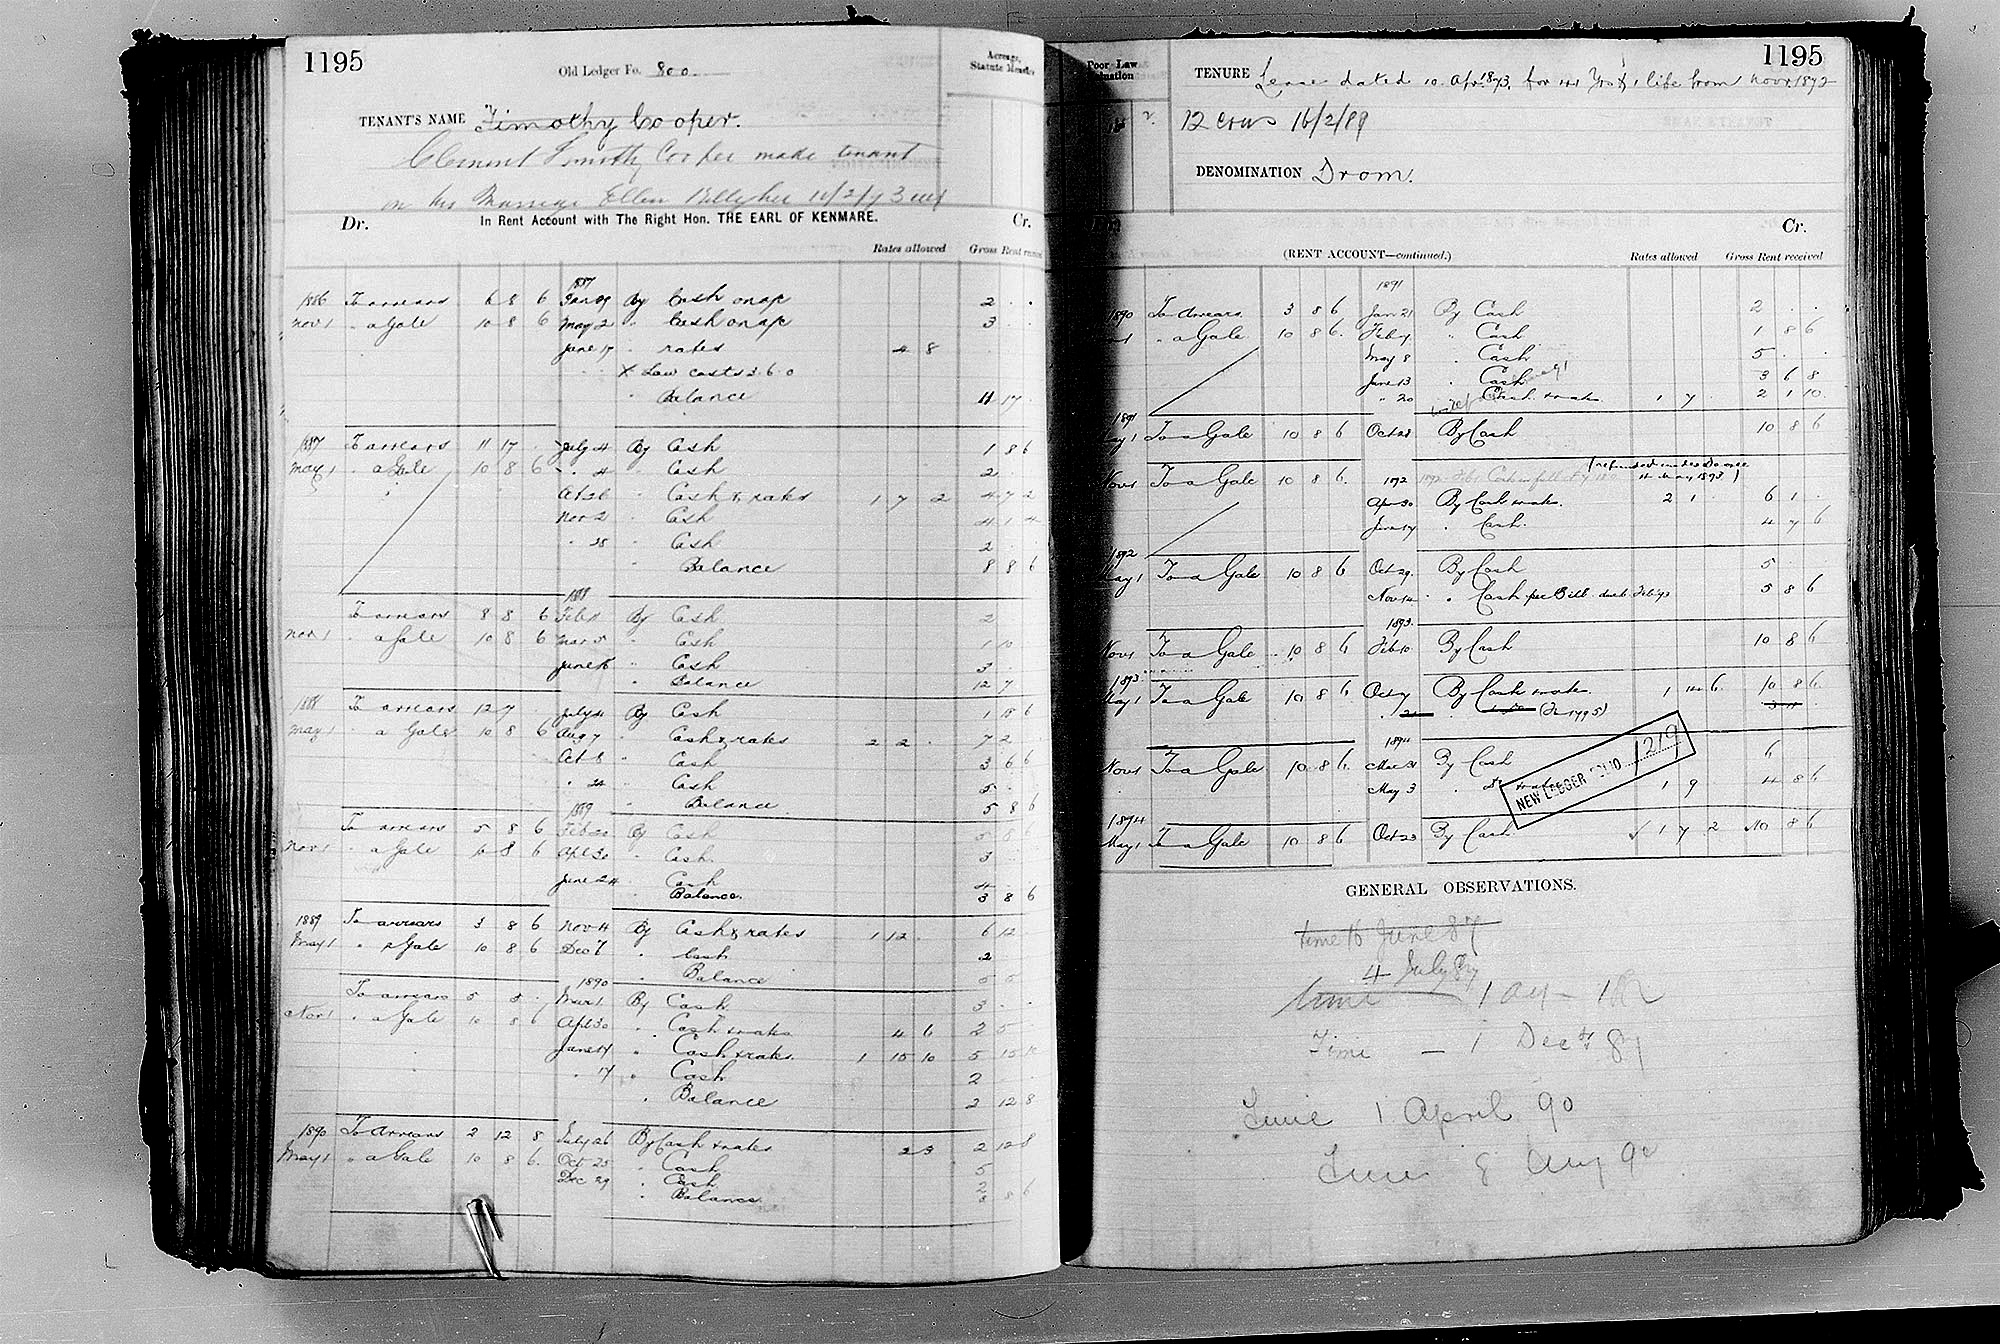 1195
Old Ledger Fo. 800
Acreage, Statute Measure
TENANT'S NAME Timothy Cooper.
Clement Timothy Cooper made tenant
on his Marriage Ellen
Dr. In Rent Account with The Right Hon. THE EARL OF KENMARE. Cr.
Rates allowed Gross Rent received
1887
1886 To arrears 6 8 6 Jan 29 By Cash on a/c 2 . .
Nov 1 " a Gale 10 8 6 May 2 " Cash on a/c 3 . .
June 17 " rates 4 8
X Law costs 3.6.0
" Balance 11 17 .
1887 To arrears 11 17 . July 4 By Cash 1 8 6
May 1 " a Gale 10 8 6 " 4 " Cash 2 . .
Oct 26 " Cash & rates 1 7 2 4 7 2
Nov 2 " Cash 4 1 4
" 28 " Cash 2
Balance 8 8 6
1888
To arrears 8 8 6 Feb 11 By Cash 2
Nov 1 " a Gale 10 8 6 Mar 5 " Cash 1 10
June 16 " Cash 3 .
" Balance 12 7
1888 To arrears 12 7 . July 4 By Cash 1 15 6
May 1 " a Gale 10 8 6 Aug 7 " Cash & rates 2 2 . 7 2 .
Oct 8 " Cash 3 6 6
" 24 " Cash 5 .
" Balance 5 8 6
1889
To arrears 5 8 6 Feb 20 By Cash 5 8 6
Nov 1 " a Gale 10 8 6 Apl 30 " Cash. 3
June 24 " Cash 4
" Balance. 3 8 6
1889 To arrears 3 8 6 Nov 14 By Cash & rates 1 12 . 6 12
May 1 " a Gale 10 8 6 Dec 7 " Cash 2
" Balance 5 5
1890
To arrears 5 5 . Mar 1 By Cash 3 . .
Nov 1 " a Gale 10 8 6 Apl 30 " Cash & rates 4 6 2 5
June 14 " Cash & rates. 1 15 10 5 15 10
" 17 " Cash 2 . .
" Balance 2 12 8
1890 To Arrears 2 12 8 July 26 By Cash & rates 2 3 2 12 8
May 1 " a Gale 10 8 6. Oct 25 " Cash 5
Dec 29 " Cash 2
" Balance 3 8 6
1195
Poor Law Valuation
TENURE Lease dated 10. Apr. 1873. for 41 Yrs & 1 life from Novr. 1872
12 cows 16/2/89
DENOMINATION Drom.
Cr.
(RENT ACCOUNT—continued.) Rates allowed Gross Rent received
1891
1890 To Arrears. 3 8 6 Jan 21 By Cash 2 . .
" a Gale 10 8 6. Feb 7 " Cash 1 8 6
May 8 " Cash 5 . .
June 13 " Cash 3 6 8
" 20 " Cash & rates 1 7 . 2 1 10
1891
May 1 To a Gale 10 8 6 Oct 28 By Cash 10 8 6
Nov 1 To a Gale 10 8 6. 1892
Apr 30 By Cash & rates. 2 1 . 6 1 .
June 14 " Cash. 4 7 6
1892
May 1 To a Gale 10 8 6 Oct 29. By Cash 5 .
Nov 14 " Cash per Bill due Feby 5 8 6
1893.
Nov 1 To a Gale 10 8 6 Feb 10 By Cash 10 8 6
1893
May 1 To a Gale 10 8 6 Oct 7 By Cash & rates. 1 14 6. 10 8 6
1894
Nov 1 To a Gale 10 8 6. Mar 31 By Cash 6
May 3 1 9 4 8 6
NEW LEDGER FOLIO 1219
1894
May 1 To a Gale 10 8 6 Oct 23 By Cash √ 1 7 2 10 8 6
GENERAL OBSERVATIONS.
time 16 June 87
4 July 87
time
Time — 1 Decr 87
Time 1 April 90
Time 8 Aug 90